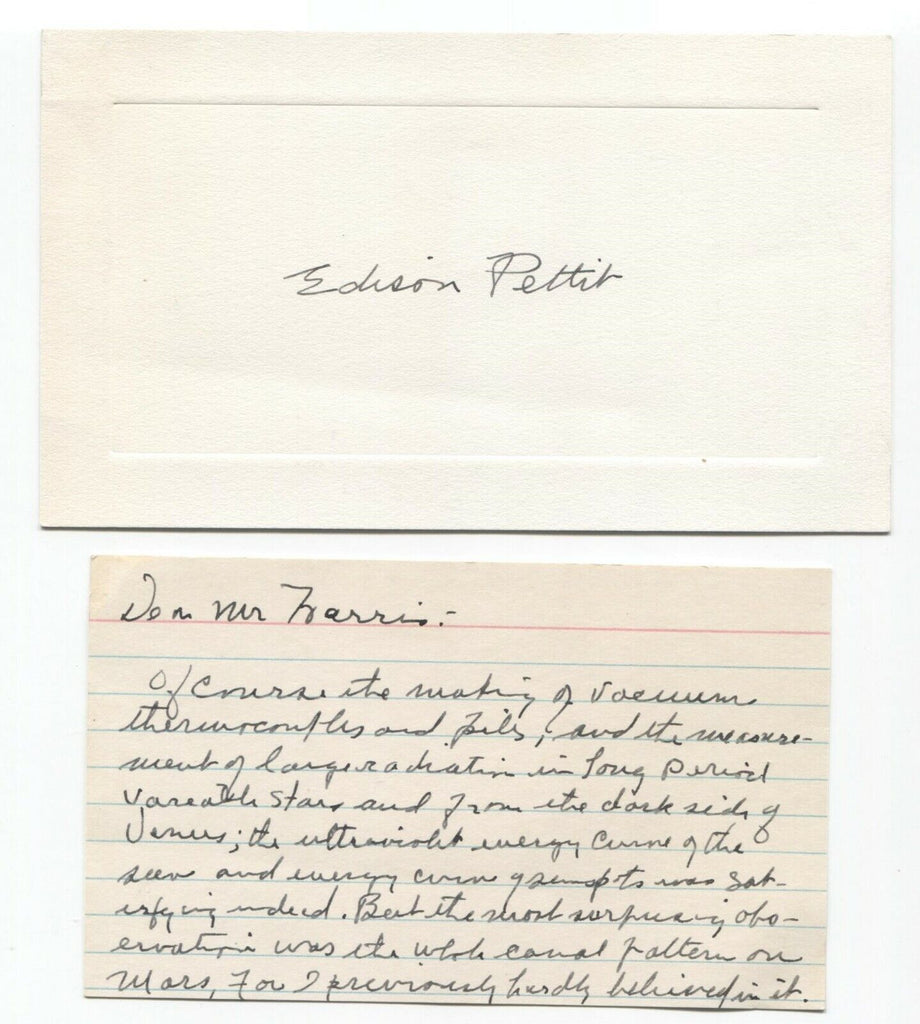 Edison Pettit
Dear Mr Harris:-
Of course the making of vacuum
thermocouples and piles, and the measure-
ment of large radiation in long period
variable stars and from the dark side of
Venus; the ultraviolet energy curve of the
sun and energy curve of sunspots was sat-
isfying indeed. But the most surprising obs-
ervation was the whole canal pattern on
Mars, for I previously hardly believed in it.